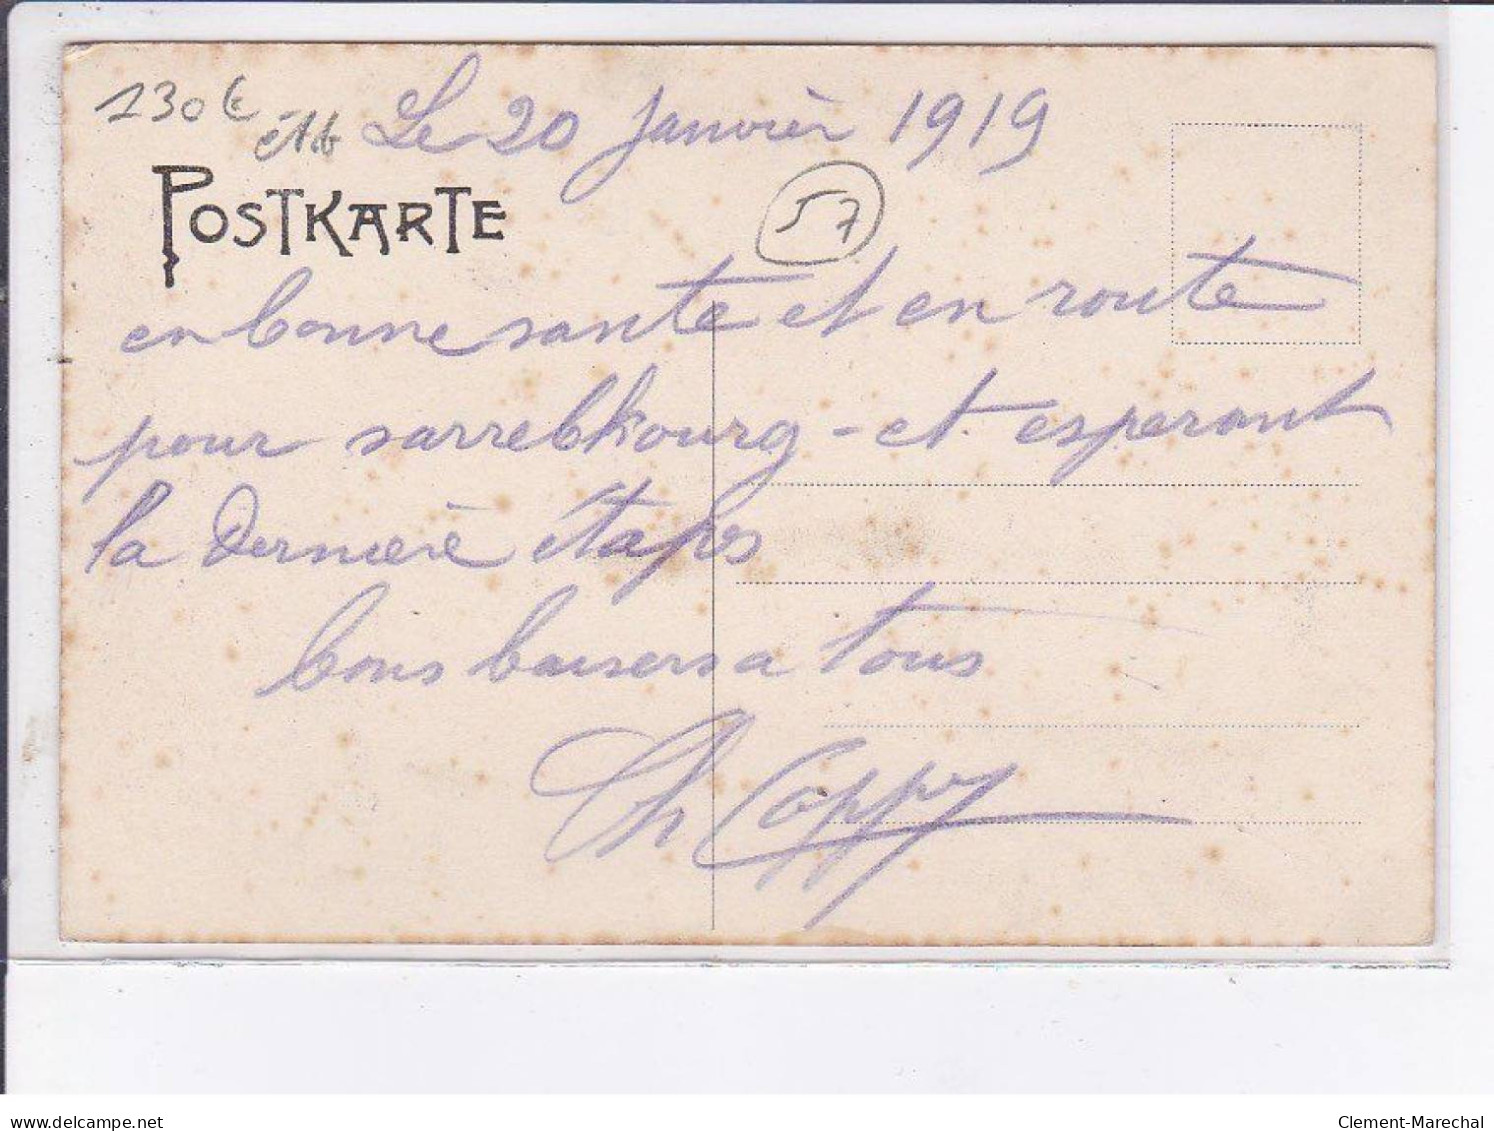 130€
Le 20 Janvièr 1919
57
POSTKARTE
en bonne sante et en route
pour sarrebkourg - et esperant
la Derniere étape
bons baisers a tous
Ch Coppy
delcampe.net
Clement-Marechal